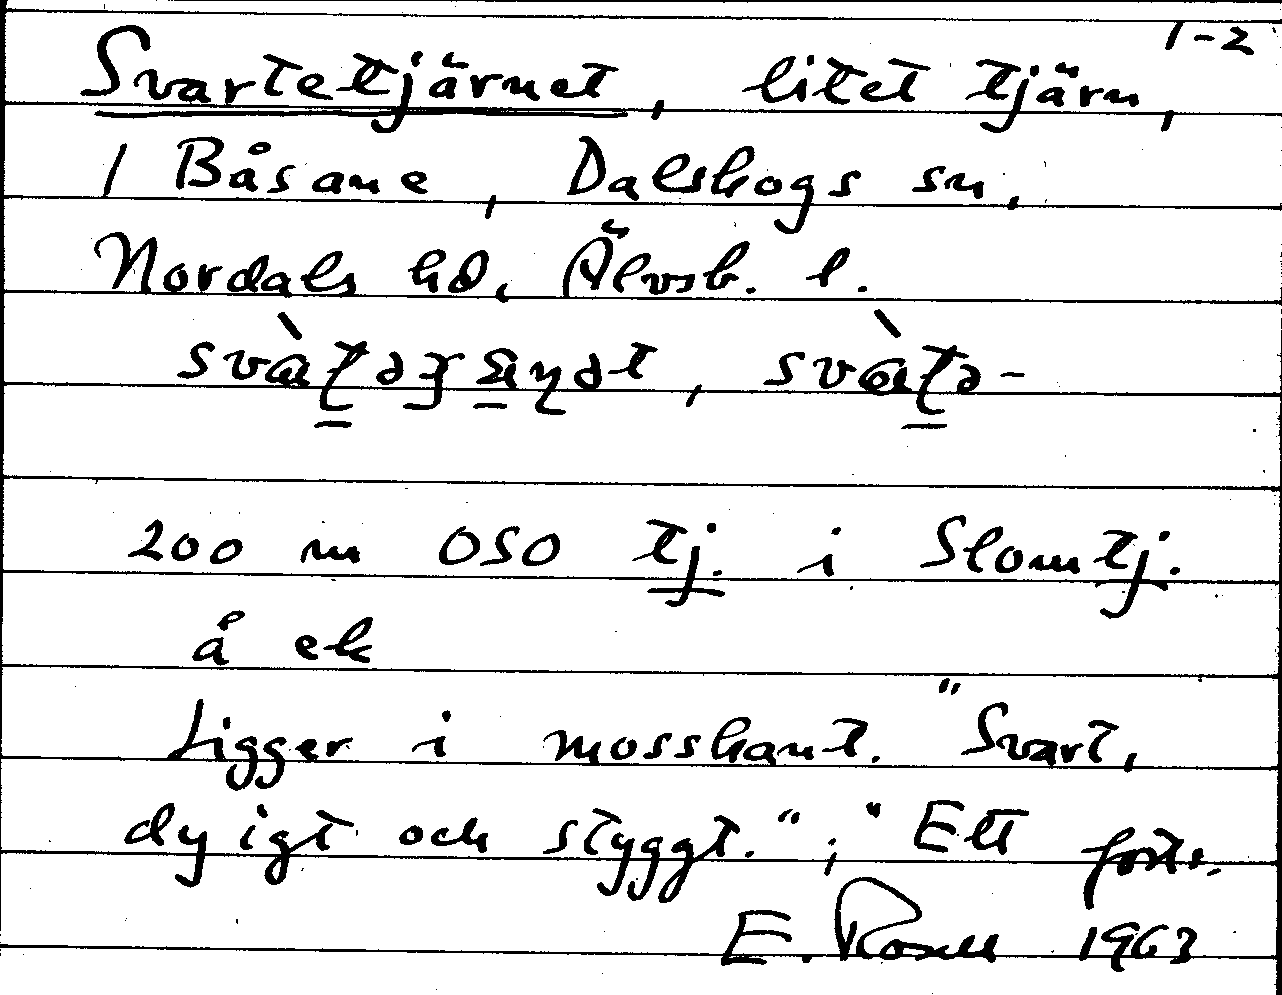 1-2
Svartetjärnet, litet tjärn,
1 Båsane, Dalskogs sn,
Nordals hd, Älvsb. l.
200 m OSO tj. i Slomtj.
å ek
Ligger i mosskant. "Svart,
dyigt och styggt."; "Ett forts.
E. Rosell 1963